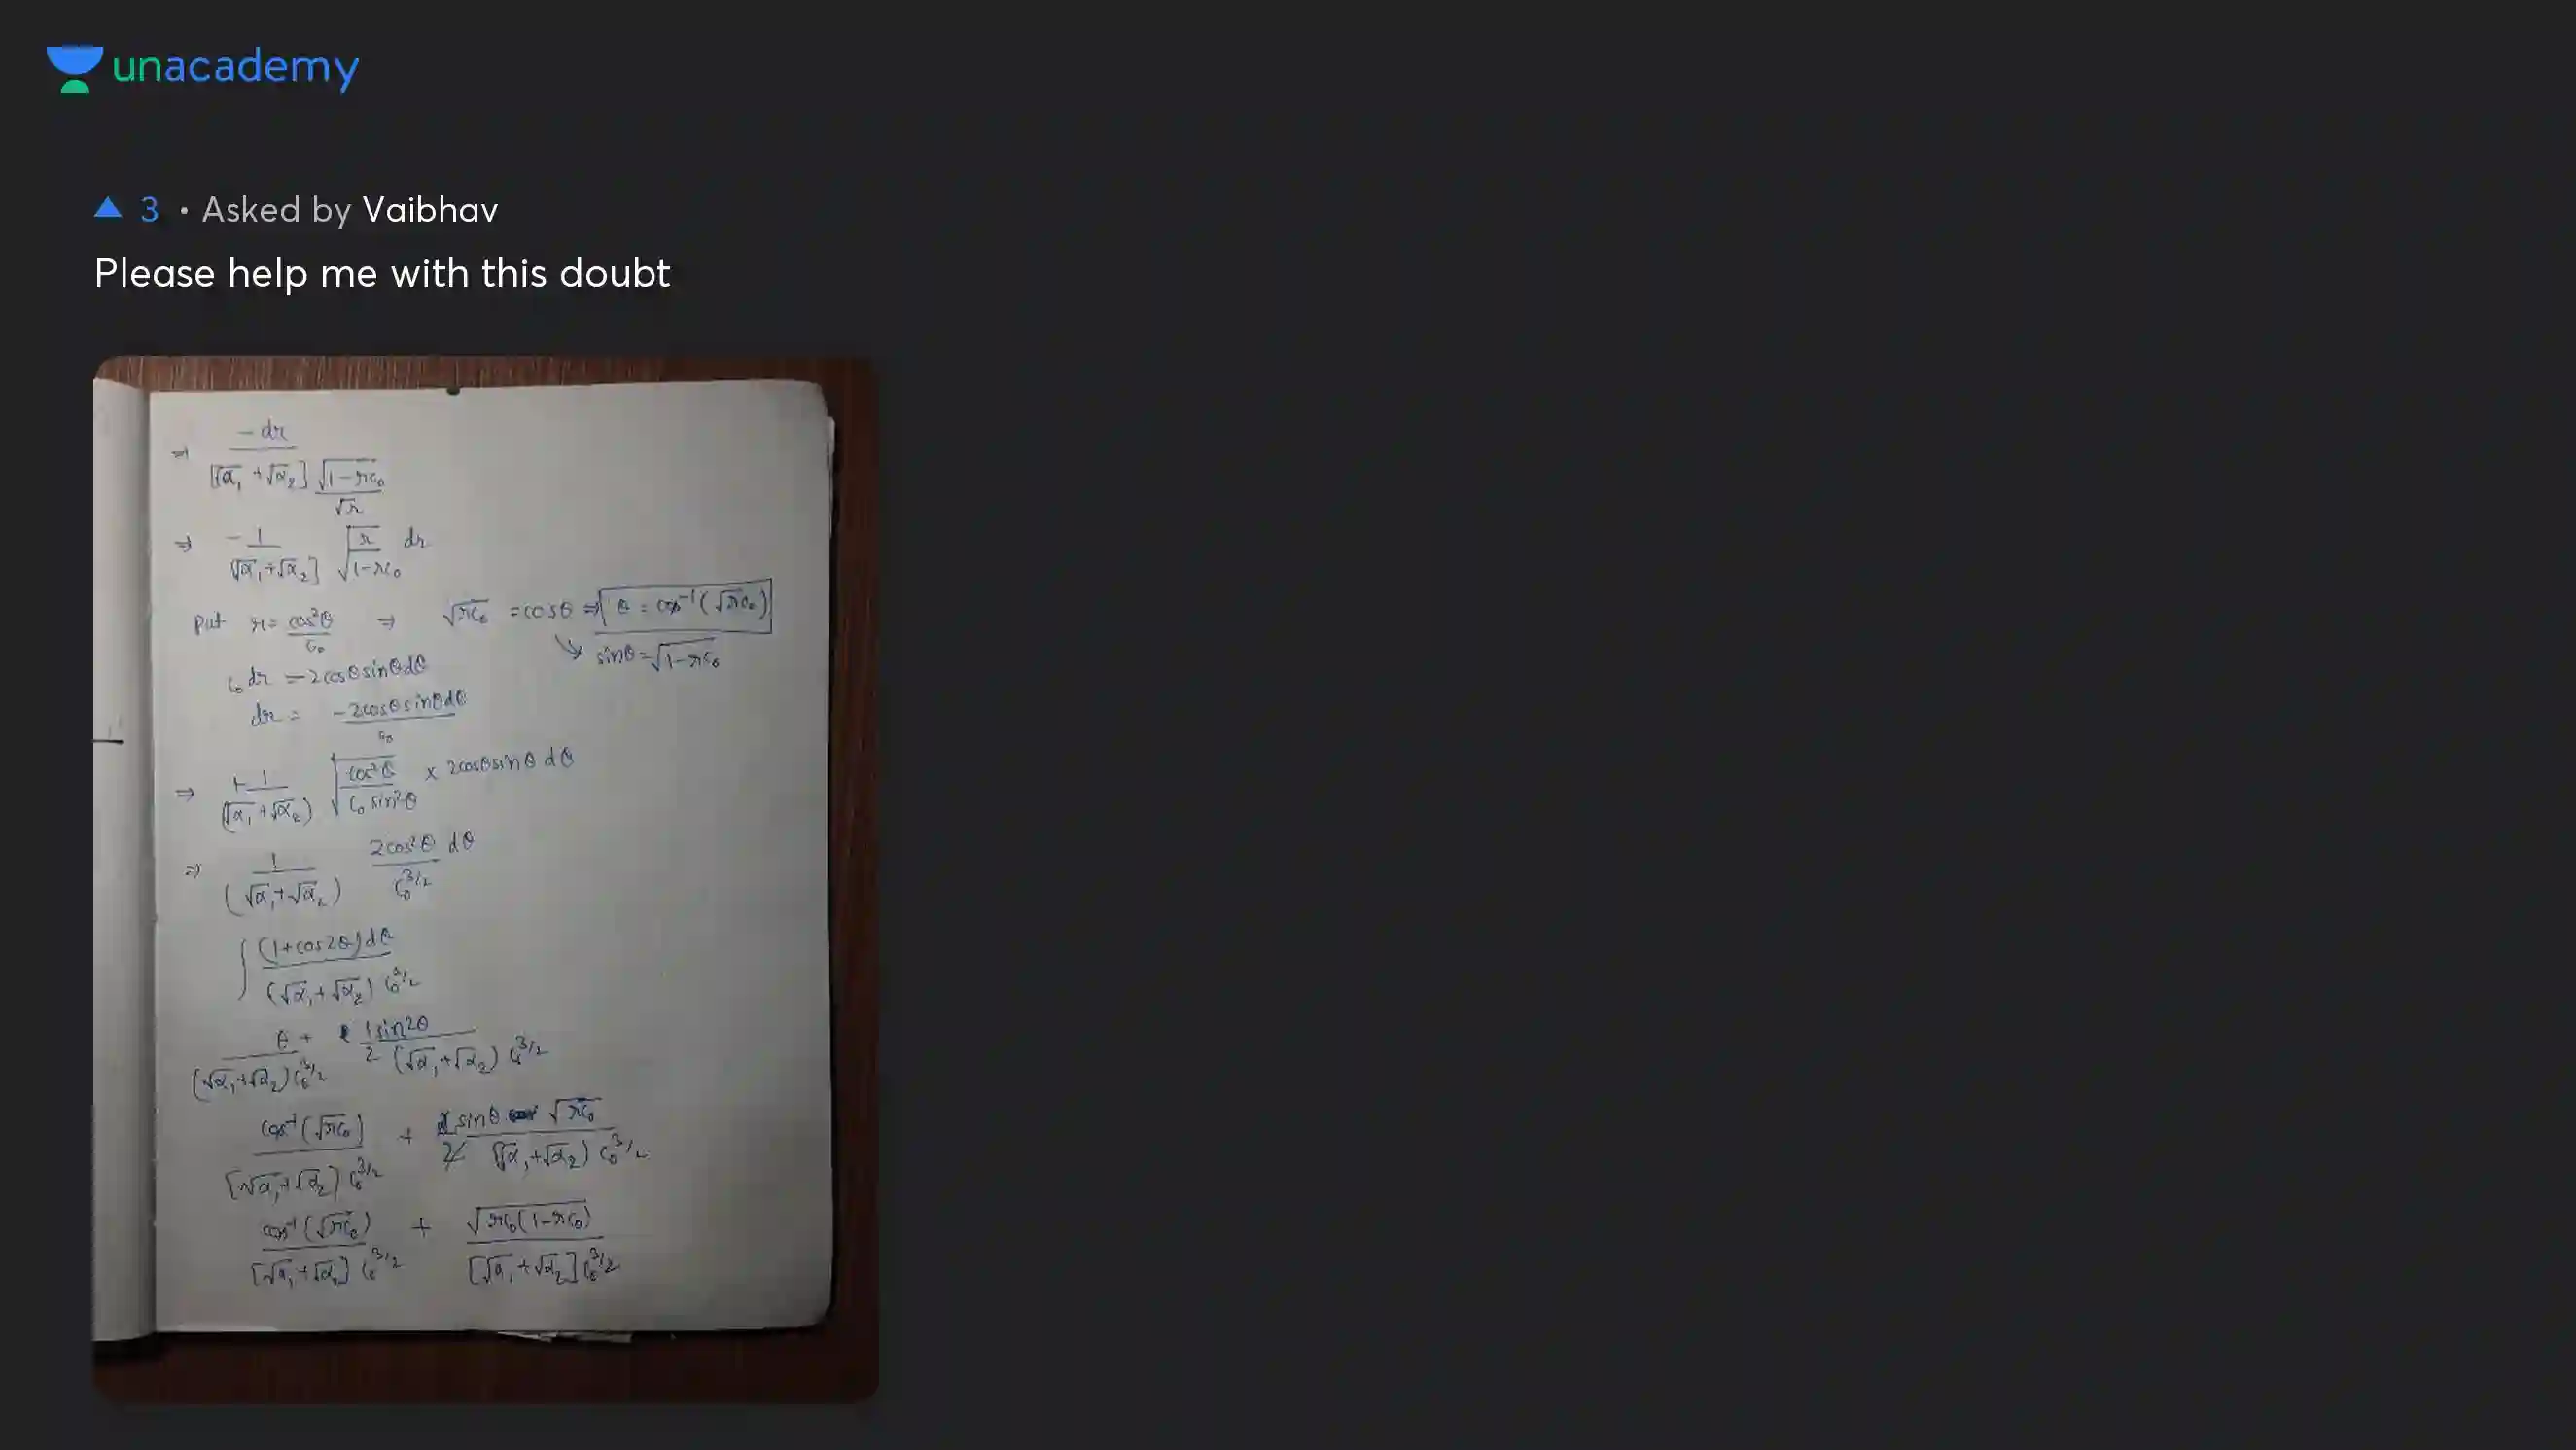 unacademy
▲ 3 • Asked by Vaibhav
Please help me with this doubt
⇒ -dr / ([√α₁ + √α₂] √(1-rc₀)/√r)
⇒ -1/[√α₁+√α₂] √(r/(1-rc₀)) dr
put r = cos²θ/c₀ ⇒ √rc₀ = cosθ ⇒ θ = cos⁻¹(√rc₀)
↘ sinθ = √(1-rc₀)
c₀ dr = -2cosθsinθdθ
dr = -2cosθsinθdθ / c₀
⇒ +1/(√α₁+√α₂) √(cos²θ/(c₀ sin²θ)) × 2cosθsinθ dθ
⇒ 1/(√α₁+√α₂) 2cos²θ dθ / c₀^3/2
∫ (1+cos2θ)dθ / (√α₁+√α₂) c₀^3/2
θ / (√α₁+√α₂)c₀^3/2 + 1 sin2θ / 2 (√α₁+√α₂) c₀^3/2
cos⁻¹(√rc₀) / [√α₁+√α₂] c₀^3/2 + 2 sinθ √rc₀ / 2 (√α₁+√α₂) c₀^3/2
cos⁻¹(√rc₀) / [√α₁+√α₂] c₀^3/2 + √rc₀(1-rc₀) / [√α₁+√α₂] c₀^3/2